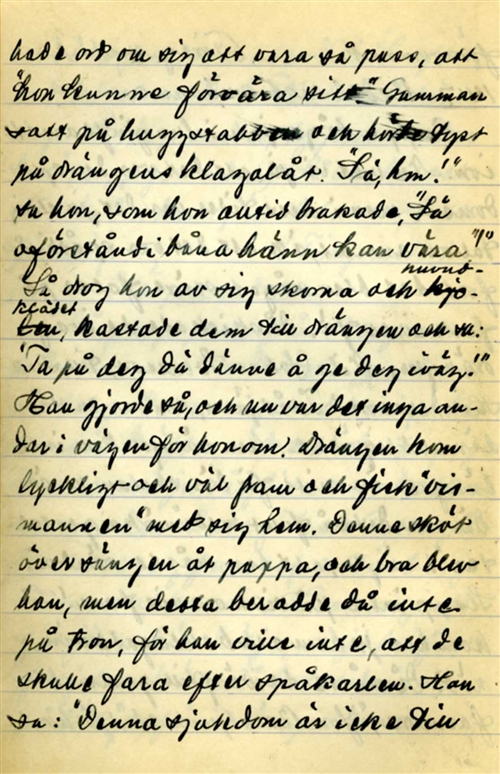 hade ord om sig att vara så pass, att
"hon kunne förvåra sitt." Gumman
satt på huggstabben och hörde tyst
på drängens klagolåt. "Så, hm!"
sa hon, som hon alltid brakade, "Så
oförstånd i båna hänn kan våra"!"
Så drog hon av sig skorna och huvud-
klädet, kastade dem till drängen och sa:
"Ta på deg då dänne å ge deg iväg!"
Han gjorde så, och nu var det inga an-
dar i vägen för honom. Drängen kom
lyckligt och väl fram och fick "vis-
mannen" med sig hem. Denne sköt
över sängen åt pappa, och bra blev
han, men detta beradde då inte
på tron, för han ville inte, att de
skulle fara efter spåkarlen. Han
sa: "Denna sjukdom är icke till